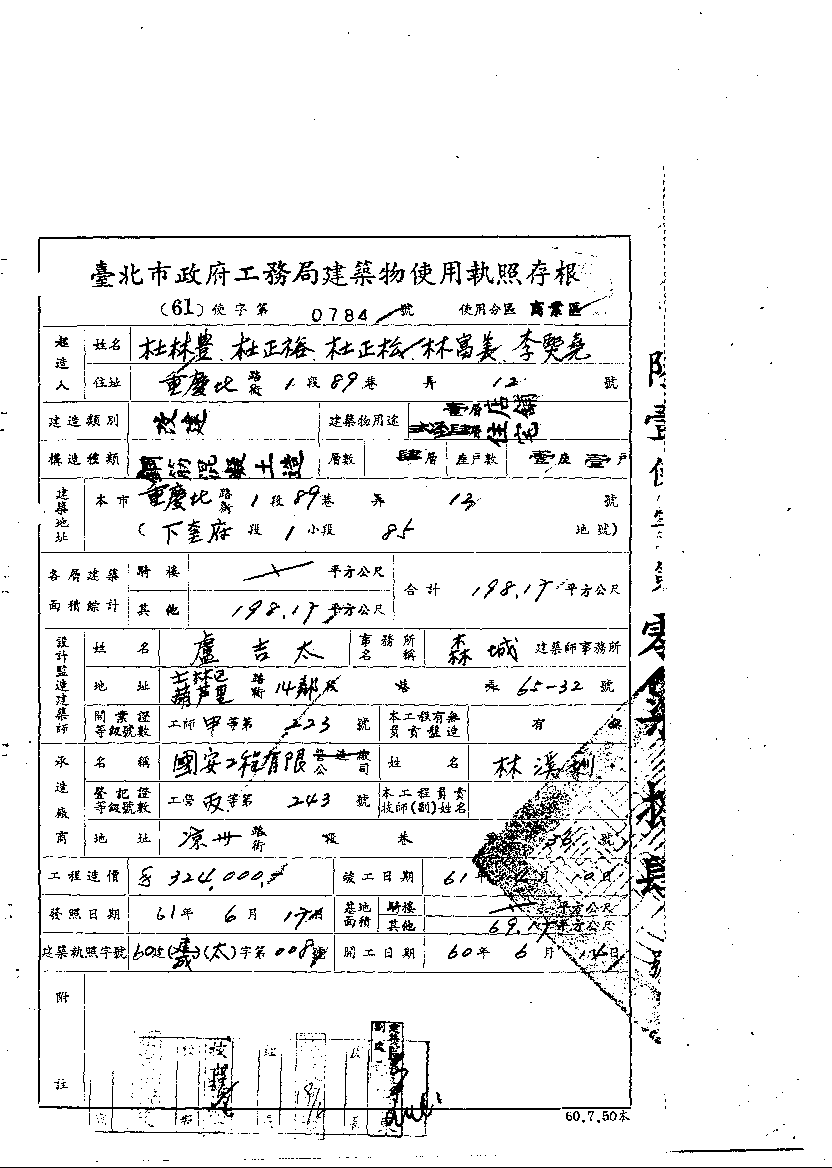 臺北市政府工務局建築物使用執照存根
(61)使字第 0784 號 使用分區 商業區
起造人 姓名 杜林豊 杜正裕 杜正松 林富美 李奭堯
住址 重慶北路街 1段89巷 弄 12 號
建造類別 改建 建築物用途 壹層店鋪 住宅
構造種類 鋼筋混凝土造 層數 肆層 座戶數 壹座壹戶
建築地址 本市 重慶北路街 1段89巷 弄 12 號
(下奎府 段 1小段 85 地號)
各層建築面積綜計 騎樓 平方公尺 合計 198.17 平方公尺
其他 198.17 平方公尺
設計監造建築師 姓名 盧吉太 事務所名稱 森城 建築師事務所
地址 士林區葫芦里 路街 14鄰 段 巷 弄 65-32 號
開業證等級號數 工師甲等第 223 號 本工程有無負責監造 有 無
承造廠商 名稱 國安工程有限公司 姓名 林
登記證等級號數 工營丙等第 243 號 本工程負責技師(副)姓名
地址 凉州路街 段 巷 36 號
工程造價 324,000 竣工日期 61年 月 10日
發照日期 61年 6月 17日 基地面積 騎樓 平方公尺
其他 69. 平方公尺
建築執照字號 60建(太)字第008號 開工日期 60年 6月 日
附註
60.7.50本
使字第零柒捌肆號